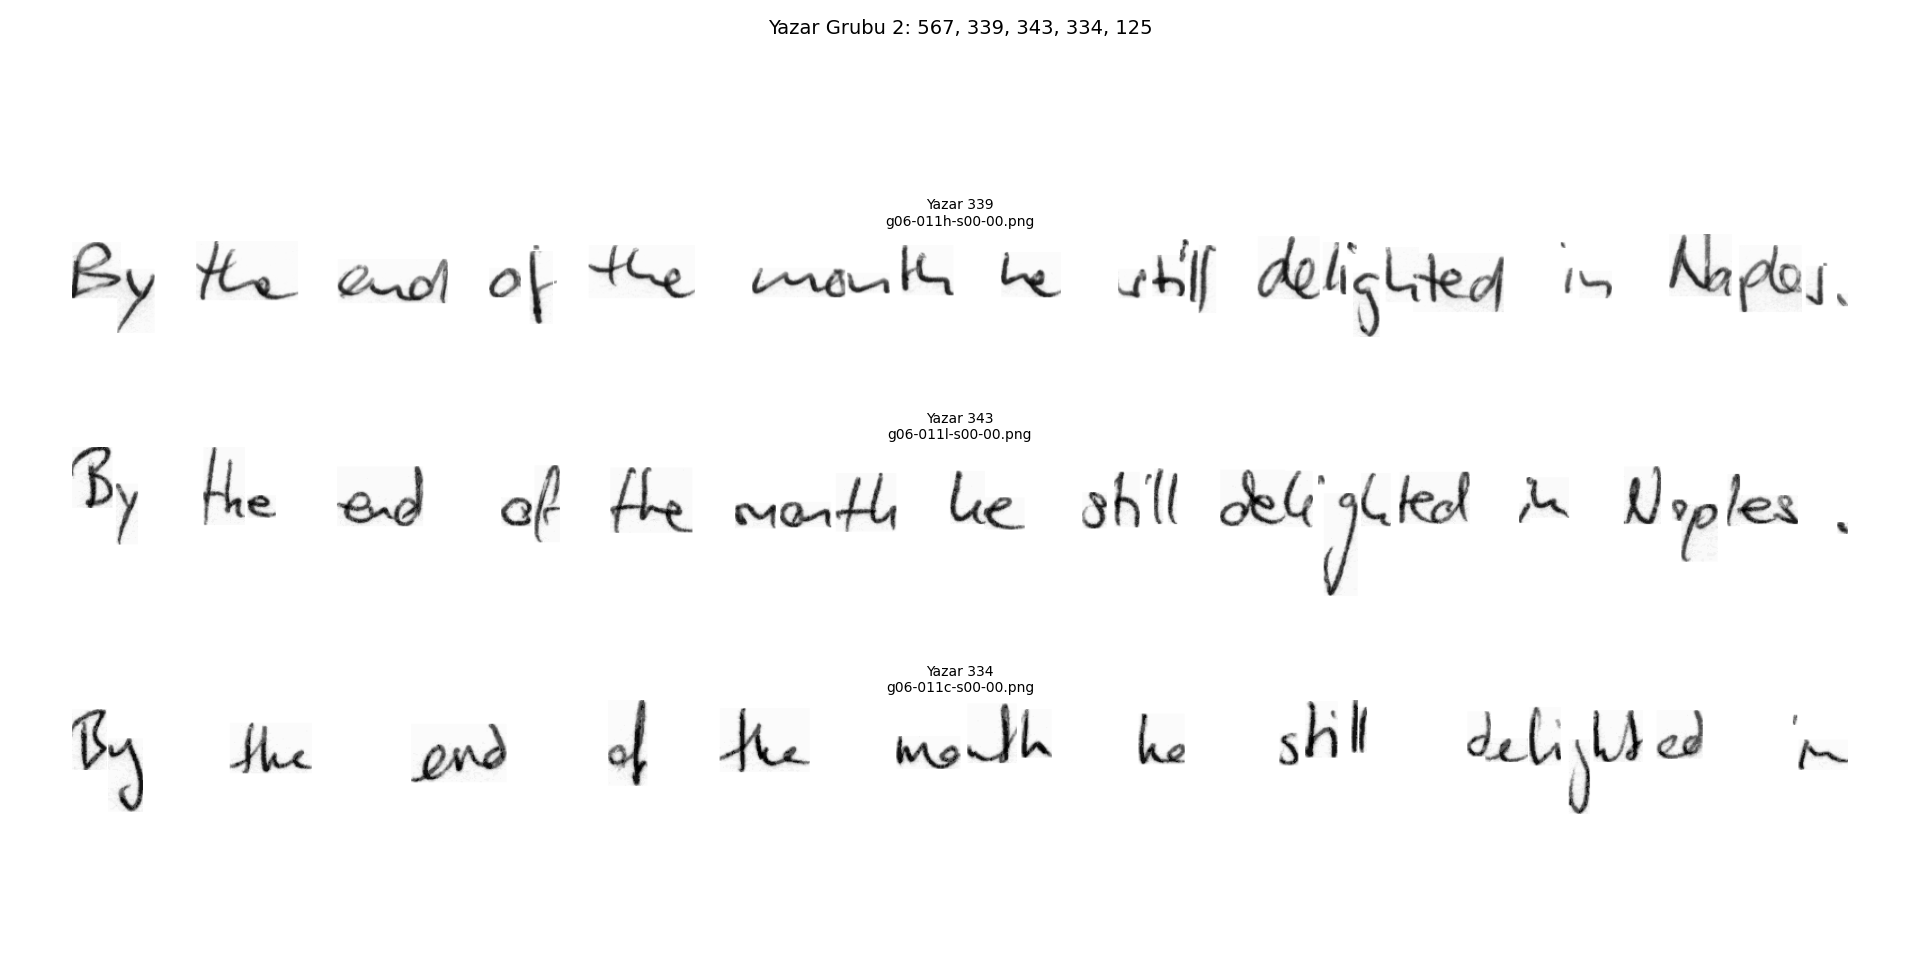 Yazar Grubu 2: 567, 339, 343, 334, 125
Yazar 339
g06-011h-s00-00.png
By the end of the month he still delighted in Naples.
Yazar 343
g06-011l-s00-00.png
By the end of the month he still delighted in Naples .
Yazar 334
g06-011c-s00-00.png
By the end of the month he still delighted in